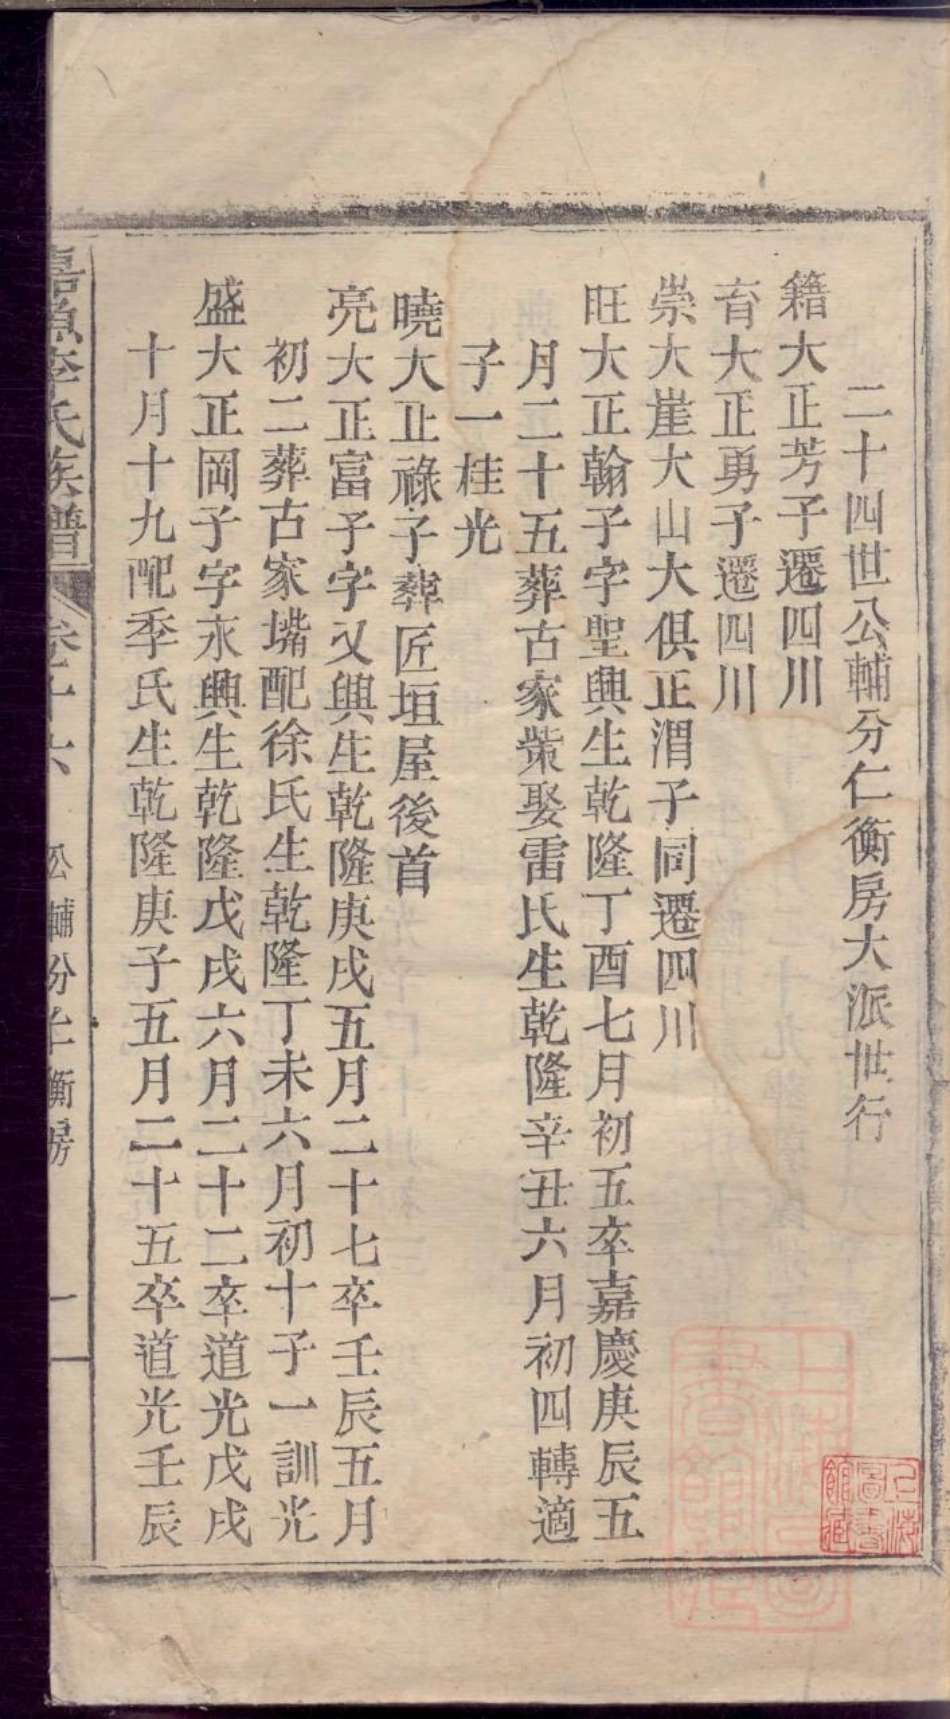 二十四世公輔分仁衡房大派世行
籍大正芳子遷四川
育大正勇子遷四川
崇大崖大山大俱正渭子同遷四川
旺大正翰子字聖興生乾隆丁酉七月初五卒嘉慶庚辰五
月二十五葬古家柴娶雷氏生乾隆辛丑六月初四轉適
子一桂光
曉大正祿子葬匠垣屋後首
亮大正富子字乂興生乾隆庚戌五月二十七卒壬辰五月
初二葬古家墈配徐氏生乾隆丁未六月初十子一訓光
盛大正岡子字永興生乾隆戊戌六月二十二卒道光戊戌
十月十九配季氏生乾隆庚子五月二十五卒道光壬辰
嘉魚李氏族譜 卷十六 公輔分仁衡房 一
上海圖書館藏
上海圖書館藏